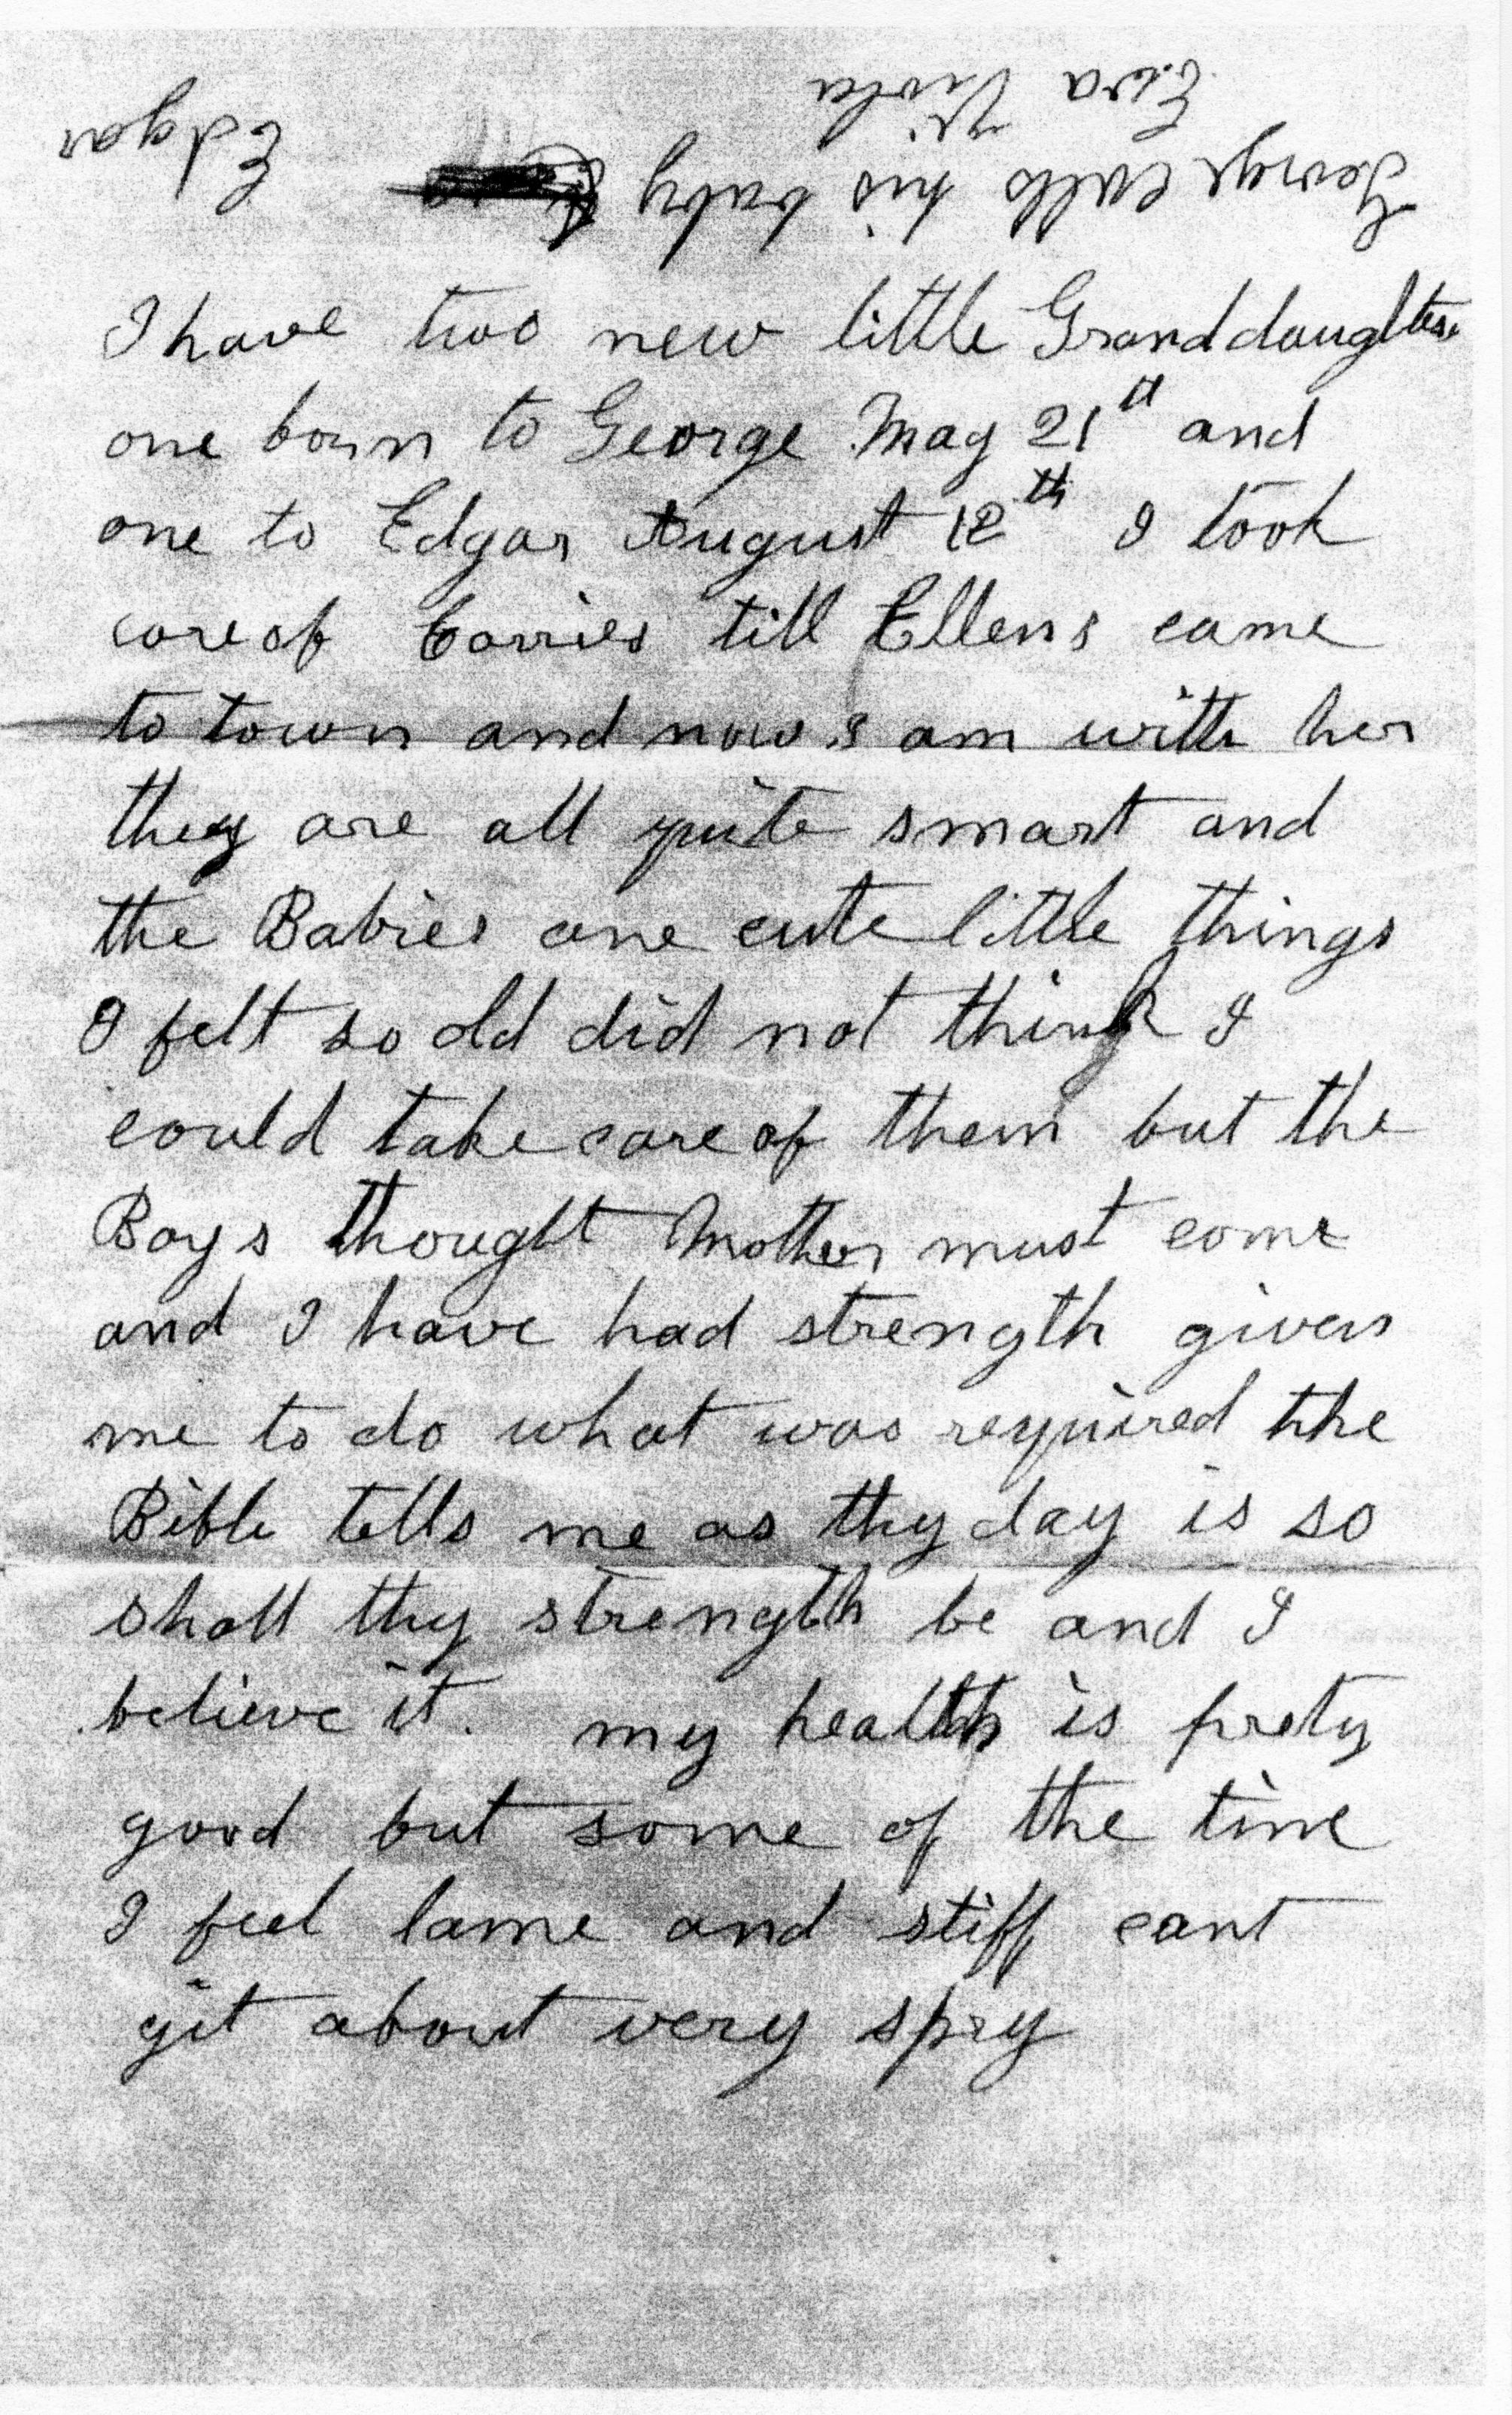 George calls his baby Edgar
Viola
I have two new little Granddaughters
one born to George May 21st and
one to Edgar August 12th I took
care of Carries till Ellens came
to town and now I am with her
they are all quite smart and
the Babies are cute little things
I felt so old did not think I
could take care of them but the
Boys thought Mother must come
and I have had strength given
me to do what was required the
Bible tells me as thy day is so
shall thy strength be and I
believe it. my health is prety
good but some of the time
I feel lame and stiff cant
git about very spry